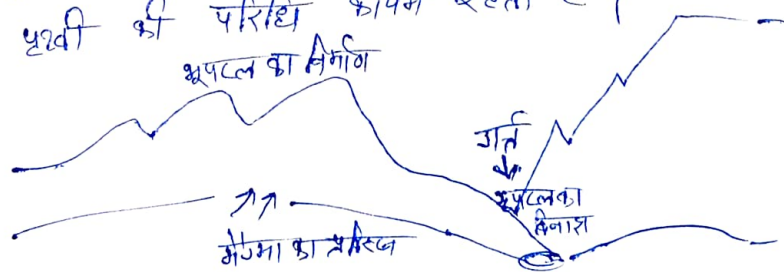 पृथ्वी की परिधि कायम रहती है।
भूपटल का निर्माण
गर्त
भूपटल का
विनाश
मैग्मा का